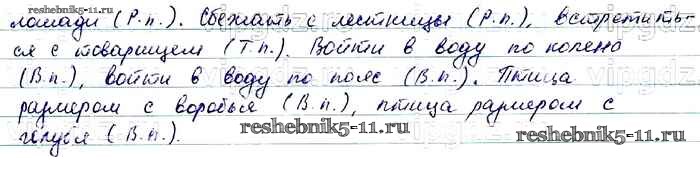 лошади (Р.п.). Сбежать с лестницы (Р.п.), встретить-
ся с товарищем (Т.п.). Войти в воду по колено
(В.п.), войти в воду по пояс (В.п.). Птица
размером с воробья (В.п.), птица размером с
голубя (В.п.).
reshebnik5-11.ru
reshebnik5-11.ru